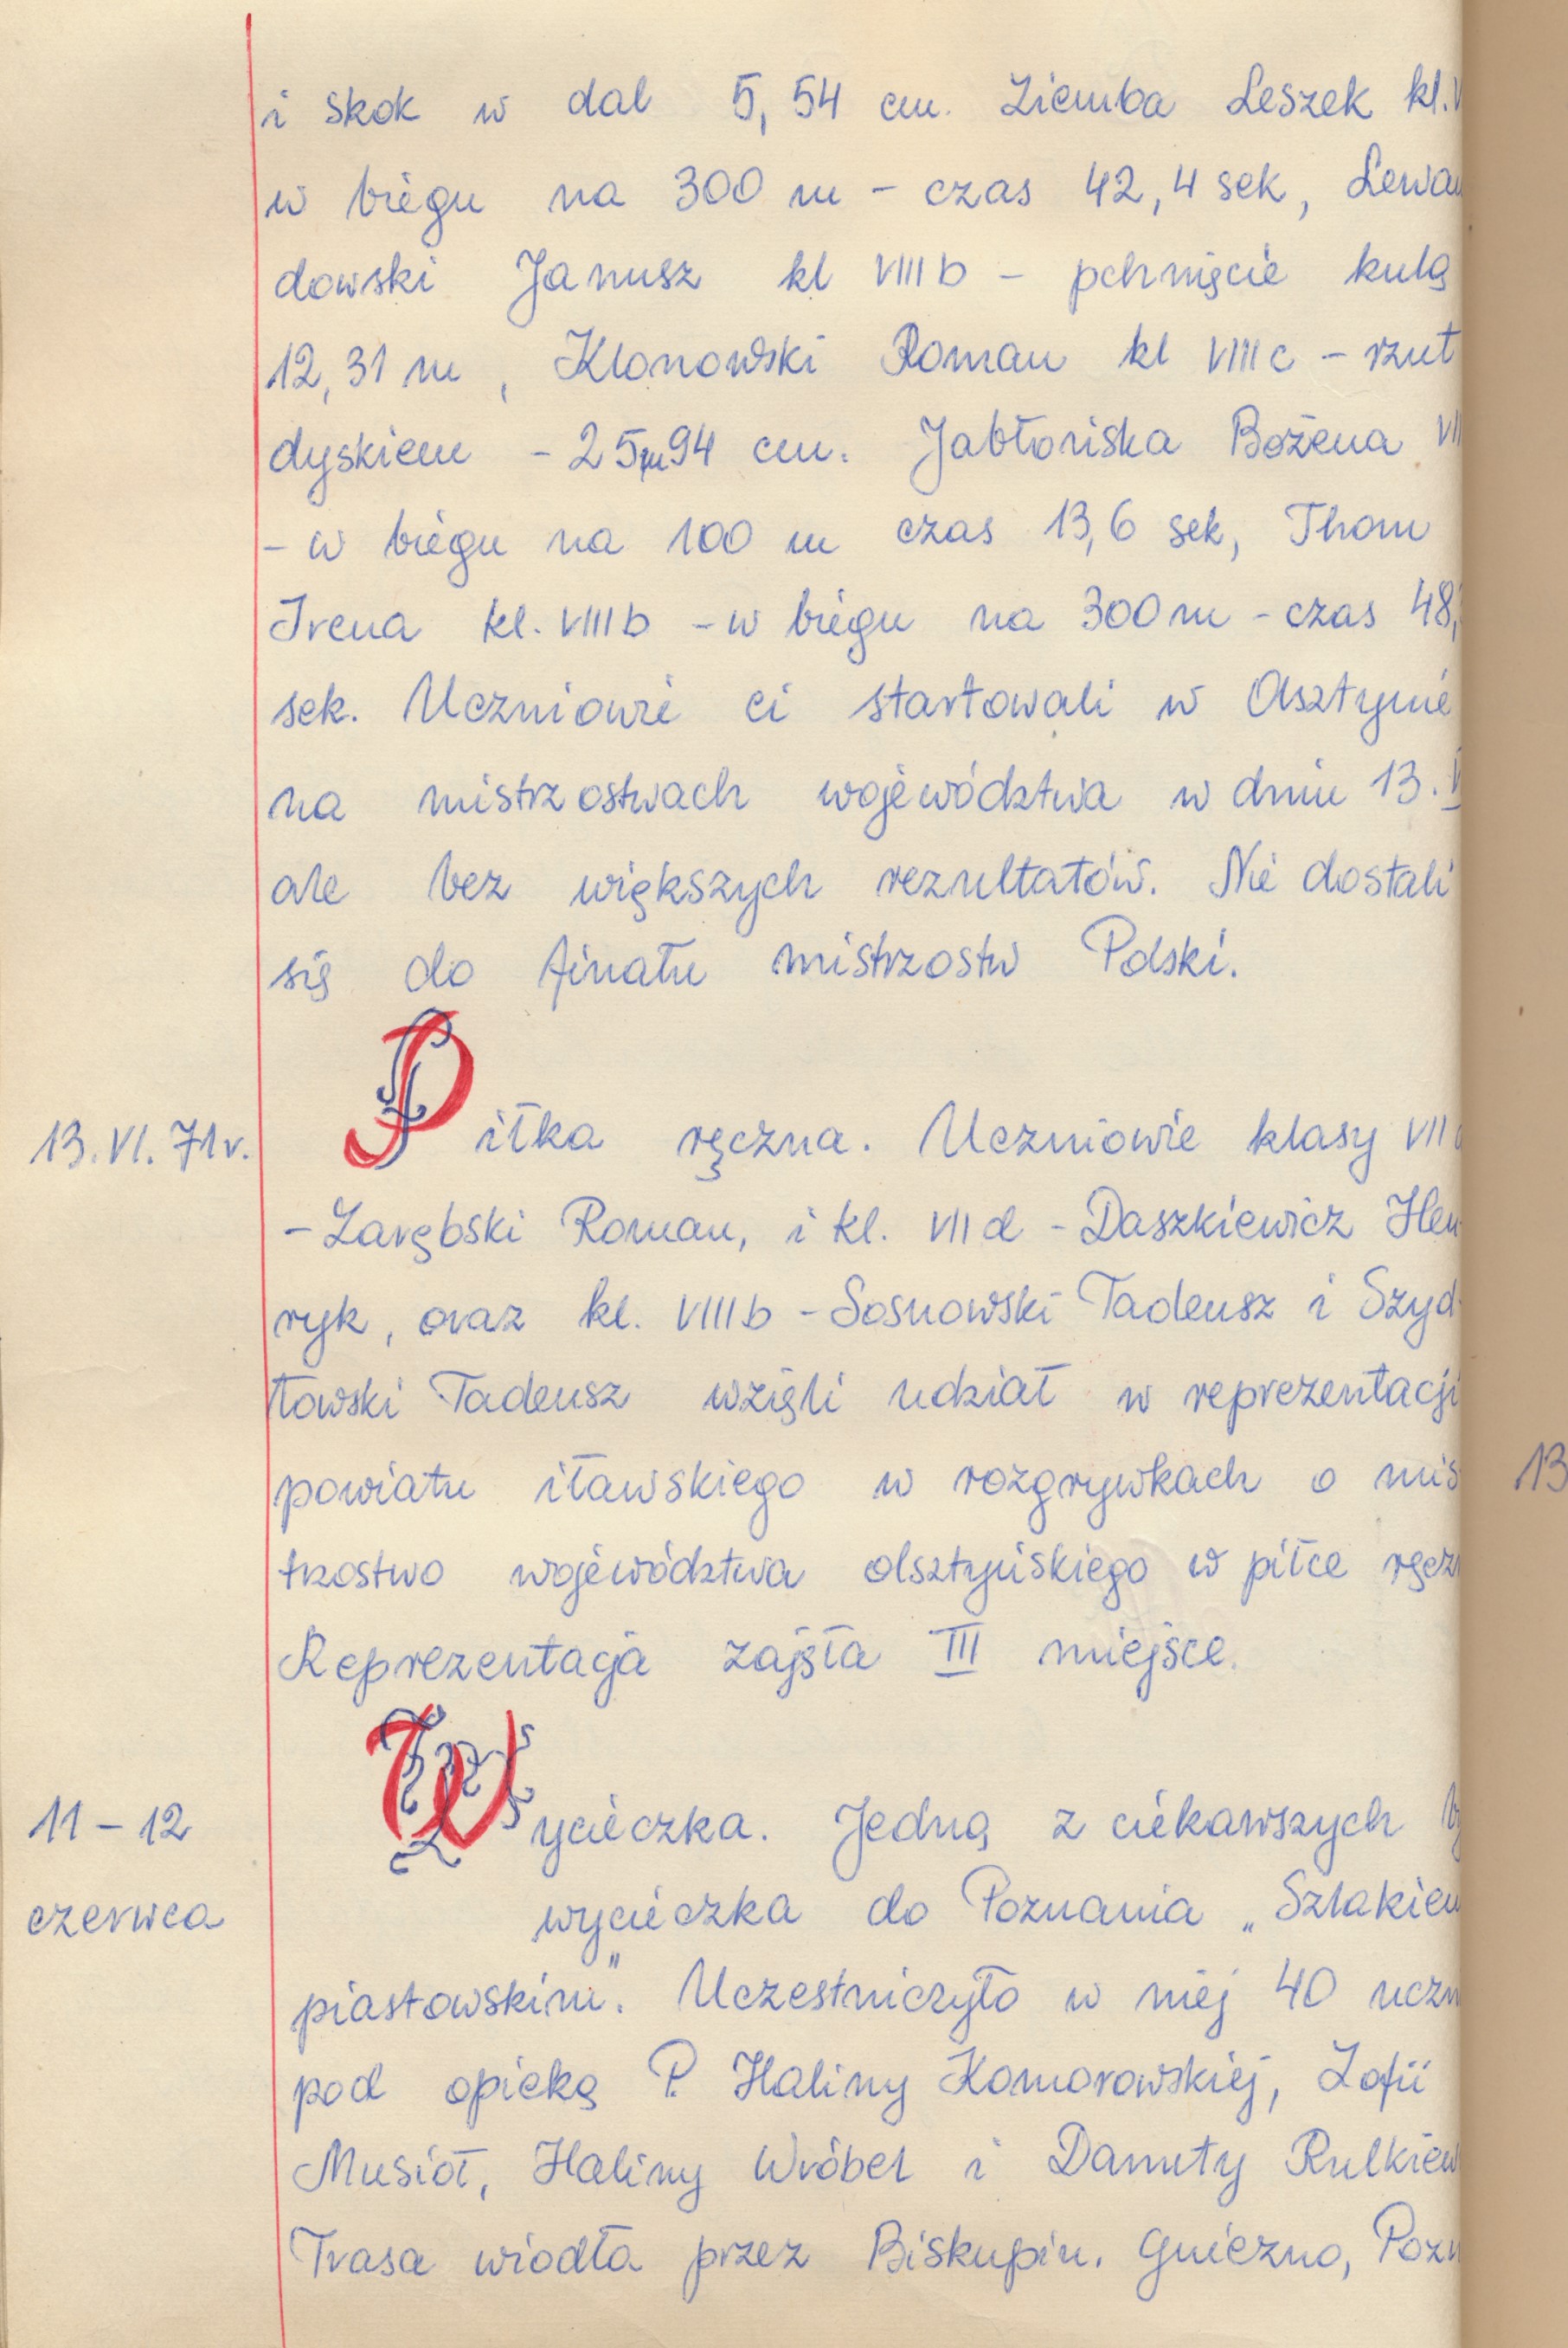 i skok w dal 5,54 cm. Ziemba Leszek kl.
w biegu na 300 m - czas 42,4 sek, Lewan
dowski Janusz kl VIII b - pchnięcie kulą
12,31 m, Klonowski Roman kl VIII c - rzut
dyskiem - 25m94 cm. Jabłońska Bożena VII
- w biegu na 100 m czas 13,6 sek, Thom
Irena kl. VIII b - w biegu na 300 m - czas 48,
sek. Uczniowie ci startowali w Olsztynie
na mistrzostwach województwa w dniu 13.
ale bez większych rezultatów. Nie dostali
się do finału mistrzostw Polski.
13.VI.71r. Piłka ręczna. Uczniowie klasy VII
- Zarębski Roman, i kl. VII d - Daszkiewicz Hen
ryk, oraz kl. VIII b - Sosnowski Tadeusz i Szyd
łowski Tadeusz wzięli udział w reprezentacji
powiatu iławskiego w rozgrywkach o mis
13
trzostwo województwa olsztyńskiego w piłce ręczn
Reprezentacja zajęła III miejsce.
11 - 12 Wycieczka. Jedną z ciekawszych
czerwca wycieczka do Poznania „Szlakiem
piastowskim". Uczestniczyło w niej 40 uczn
pod opieką P. Haliny Komorowskiej, Zofii
Musioł, Haliny Wróbel i Danuty Rulkiew
Trasa wiodła przez Biskupin. Gniezno, Pozn